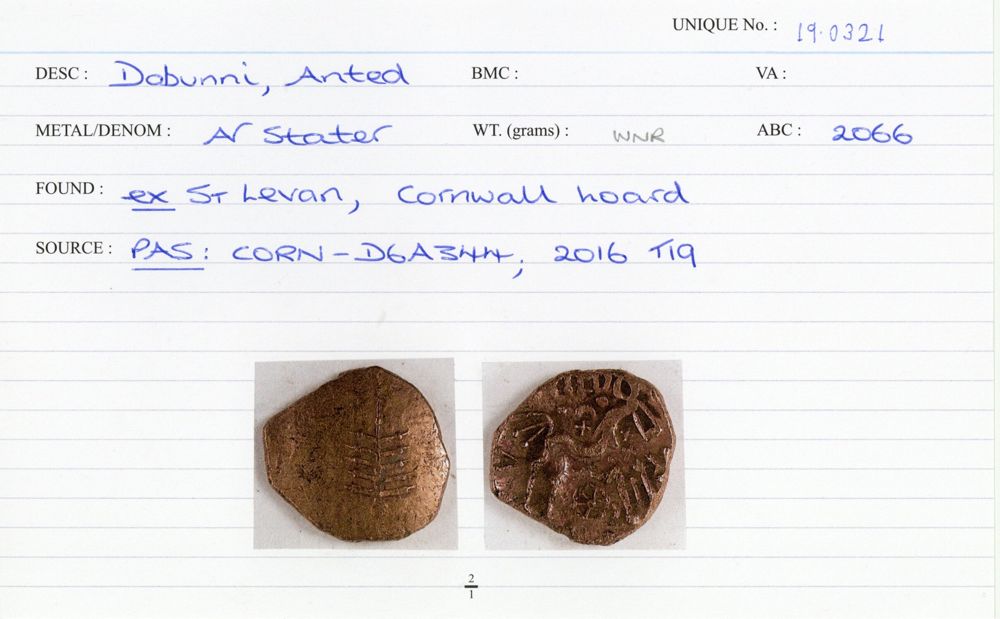 UNIQUE No. : 19.0321
DESC : Dobunni, Anted BMC : VA :
METAL/DENOM : AV Stater WT. (grams) : WNR ABC : 2066
FOUND : ex St Levan, Cornwall hoard
SOURCE : PAS: CORN-D6A344; 2016 T19
2
1